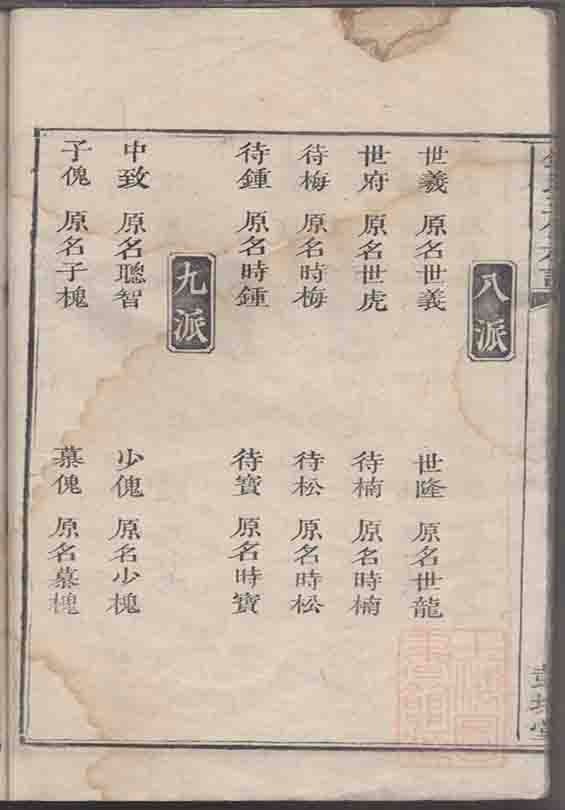 八派
世羲 原名世義
世隆 原名世龍
世府 原名世虎
待楠 原名時楠
待梅 原名時梅
待松 原名時松
待鍾 原名時鍾
待寶 原名時寶
九派
中致 原名聰智
少傀 原名少槐
子傀 原名子槐
慕傀 原名慕槐